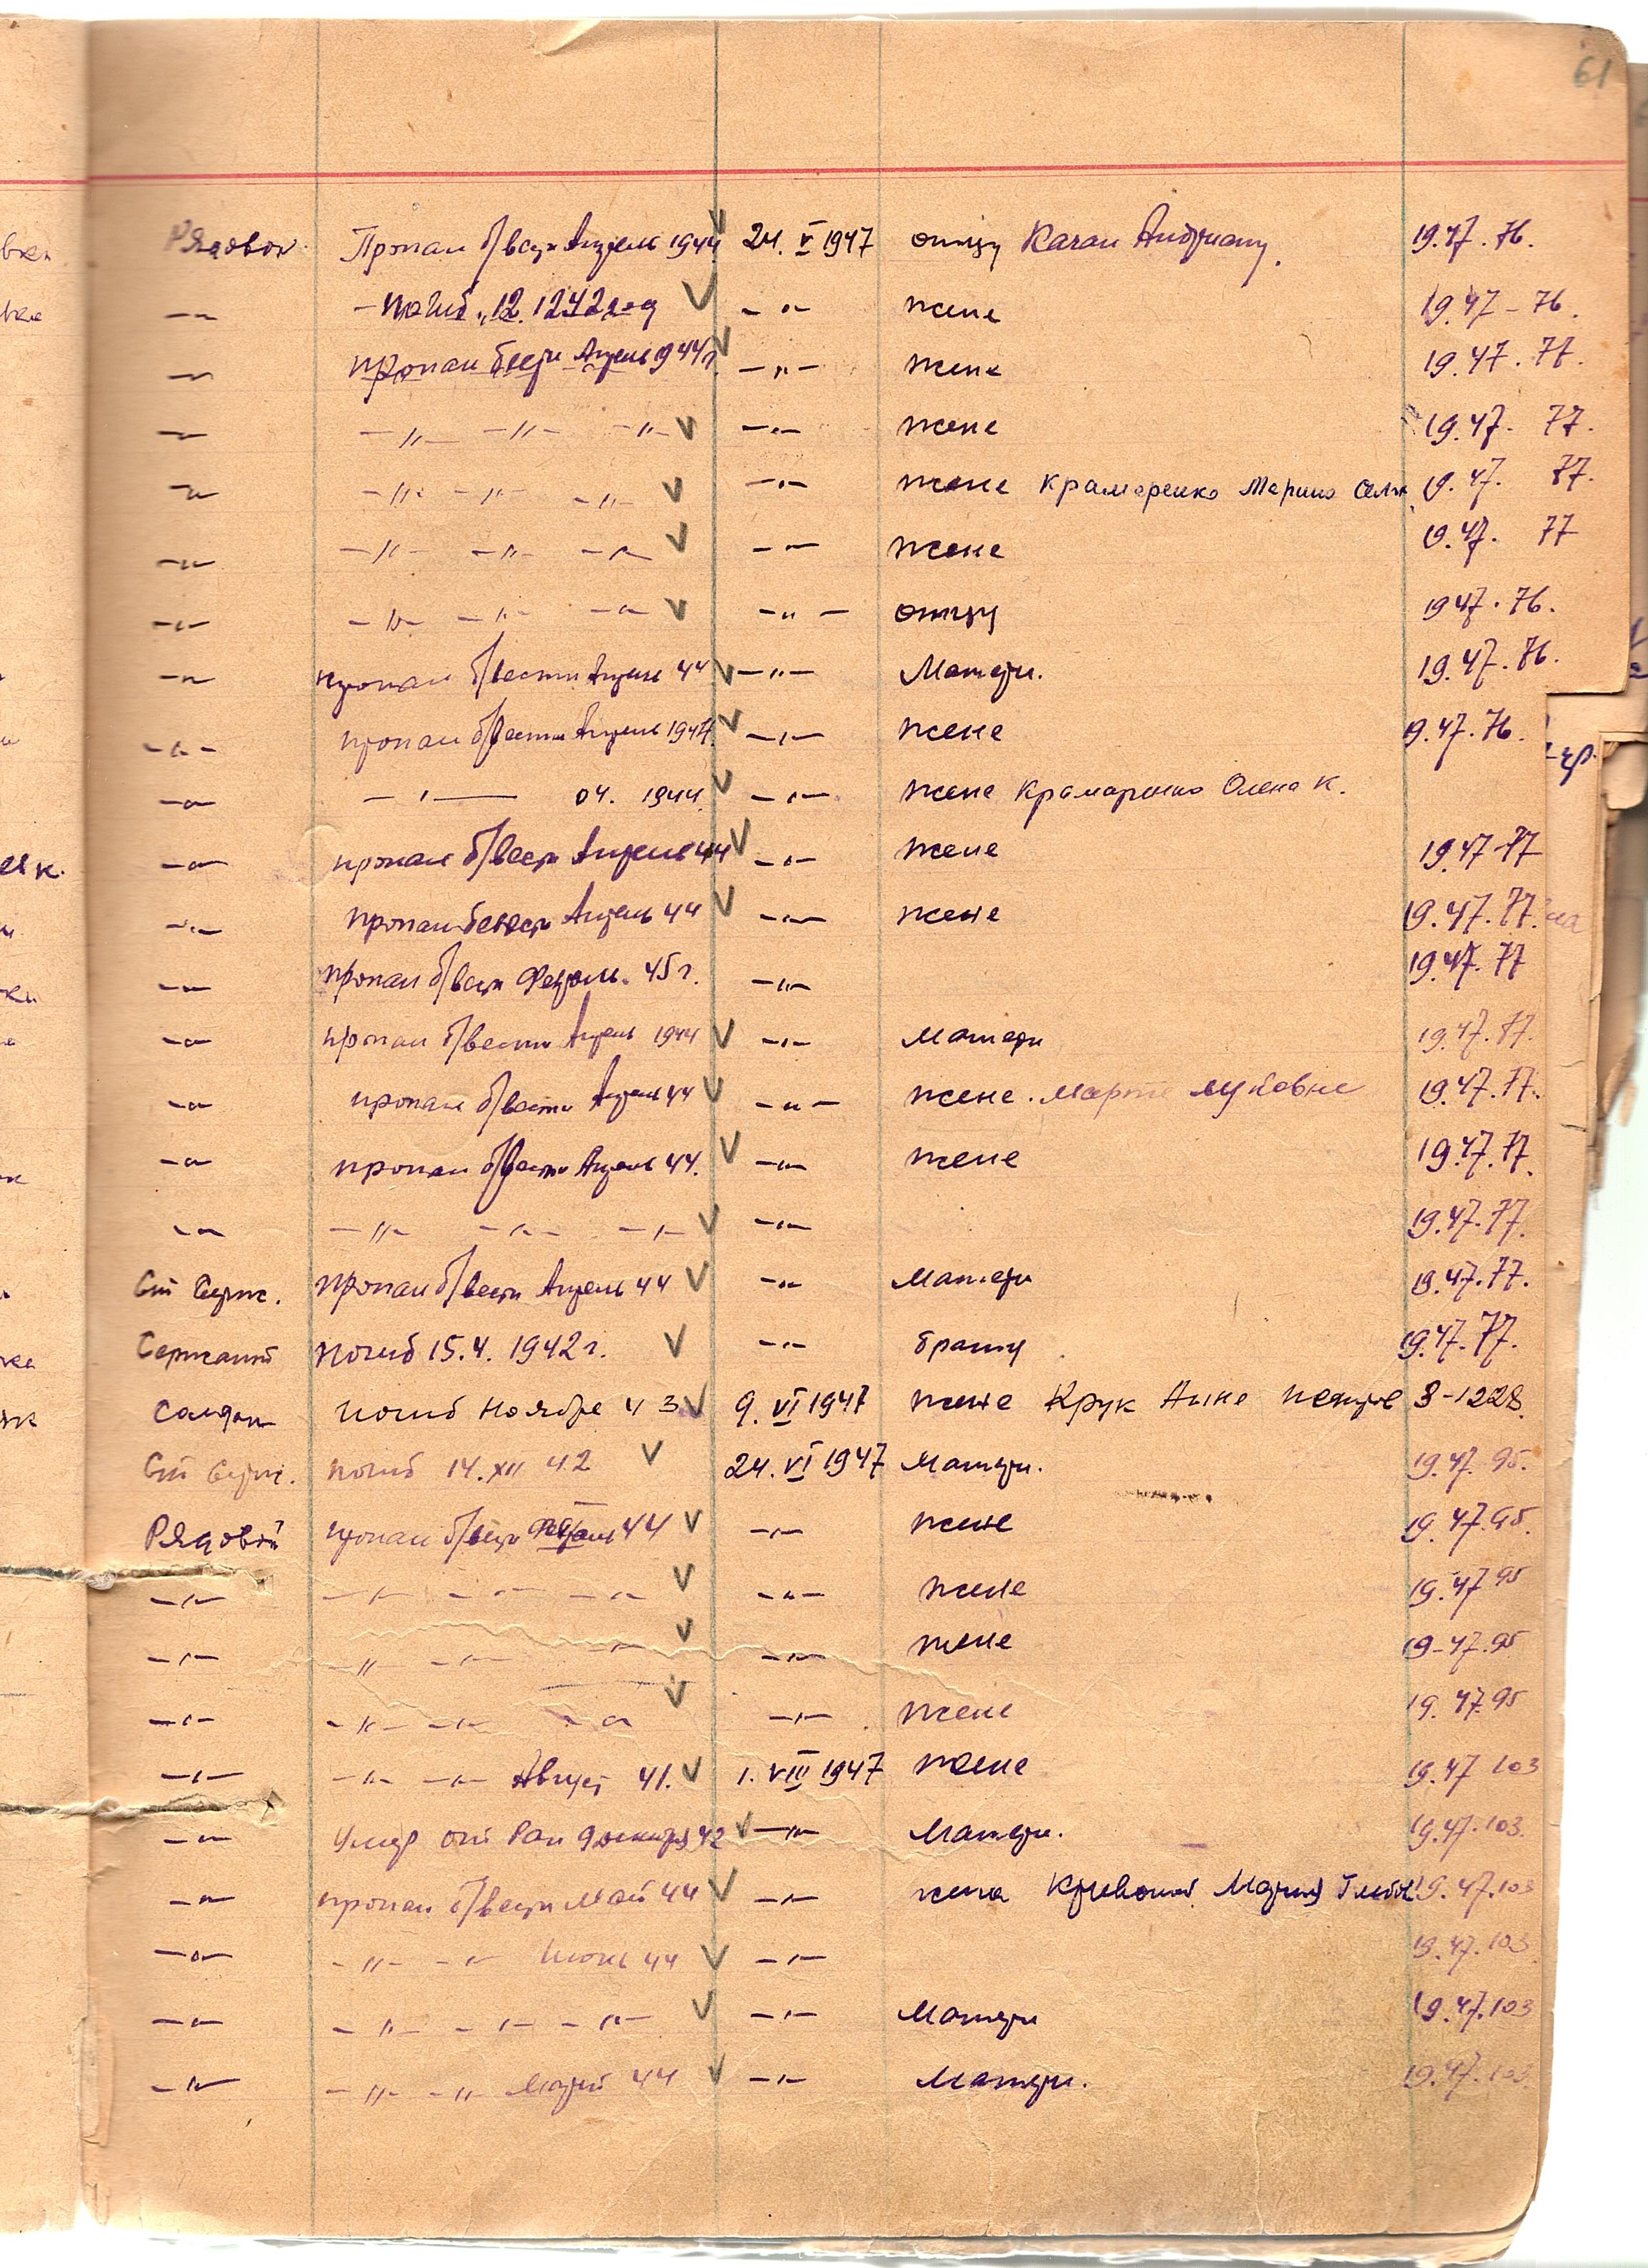 61
Рядовой Пропал б/вести Апрель 1944 24. V 1947 отцу Качан Андриану. 19.47.76.
—"— погиб 12. 1242 год —"— жене 19.47-76.
—"— пропал б вести Апрель 1944 г. —"— жене 19.47.77.
—"— —"— —"— —"— —"— жене 19.47. 77.
—"— —"— —"— —"— —"— жене Крамаренко 19.47. 77.
—"— —"— —"— —"— —"— жене 19.47. 77
—"— —"— —"— —"— —"— отцу 1947.76.
—"— пропал б/вести Апрель 44 —"— Матери. 19.47.76.
—"— пропал б/вести Апрель 1944. —"— жене 19.47.76.
—"— —"— 04. 1944. —"— жене Крамаренко Олена К.
—"— пропал б/вести Апрель 44 —"— жене 19.47-77
—"— пропал безвести Апрель 44 —"— жене 19.47.77.
—"— пропал б/вести Февраль. 45 г. —"— 19.47.77
—"— пропал б/вести Апрель 1944 —"— матери 19.47.77.
—"— пропал б/вести Апрель 44 —"— жене. Марте 19.47.77.
—"— пропал б/вести Апрель 44. —"— жене 19.47.77.
—"— —"— —"— —"— —"— 19.47.77.
Ст Серж. пропал б/вести Апрель 44 —"— Матери 19.47.77.
Сержант погиб 15.4. 1942 г. —"— брату 19.47.77.
Солдат погиб Ноября 43 9. VI 1947 жене Крук Анне 3-1228.
Ст Серж. погиб 14. XII 42 24. VI 1947 Матери. 19.47.95.
Рядовой пропал б/вести Февраль 44 —"— жене 19.47.95.
—"— —"— —"— —"— —"— жене 19.47 95
—"— —"— —"— —"— —"— жене 19-47.95
—"— —"— —"— —"— —"— жене 19.47.95
—"— —"— —"— Август 41. 1. VIII 1947 жене 19.47 103
—"— Умер от Ран 9 декабря 42 —"— Матери. 19.47.103.
—"— пропал б/вести Май 44 —"— жена Мария 19.47.103
—"— —"— —"— Июнь 44 —"— 19.47.103
—"— —"— —"— —"— —"— Матери 19.47.103
—"— —"— —"— 44 —"— Матери. 19.47.103.